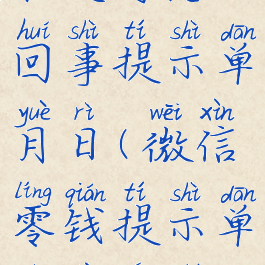 huí shì tí shì dān
回事提示单
yuè rì wēi xìn
月日(微信
líng qián tí shì dān
零钱提示单